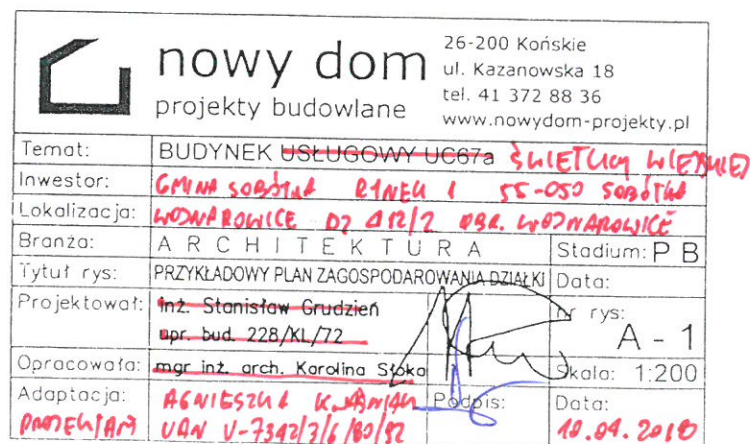 nowy dom
projekty budowlane
26-200 Końskie
ul. Kazanowska 18
tel. 41 372 88 36
www.nowydom-projekty.pl
Temat: BUDYNEK USŁUGOWY UC67a ŚWIETLICY WIEJSKIEJ
Inwestor: GMINA SOBÓTKA RYNEK 1 55-050 SOBÓTKA
Lokalizacja: WOJNAROWICE DZ 412/2 OBR. WOJNAROWICE
Branża: ARCHITEKTURA Stadium: PB
Tytuł rys: PRZYKŁADOWY PLAN ZAGOSPODAROWANIA DZIAŁKI Data:
Projektował: inż. Stanisław Grudzień nr rys:
upr. bud. 228/KL/72 A - 1
Opracowała: mgr inż. arch. Karolina Słoka Skala: 1:200
Adaptacja: AGNIESZKA Podpis: Data:
UAN V-7342/3/6/80/92 10.04.2018